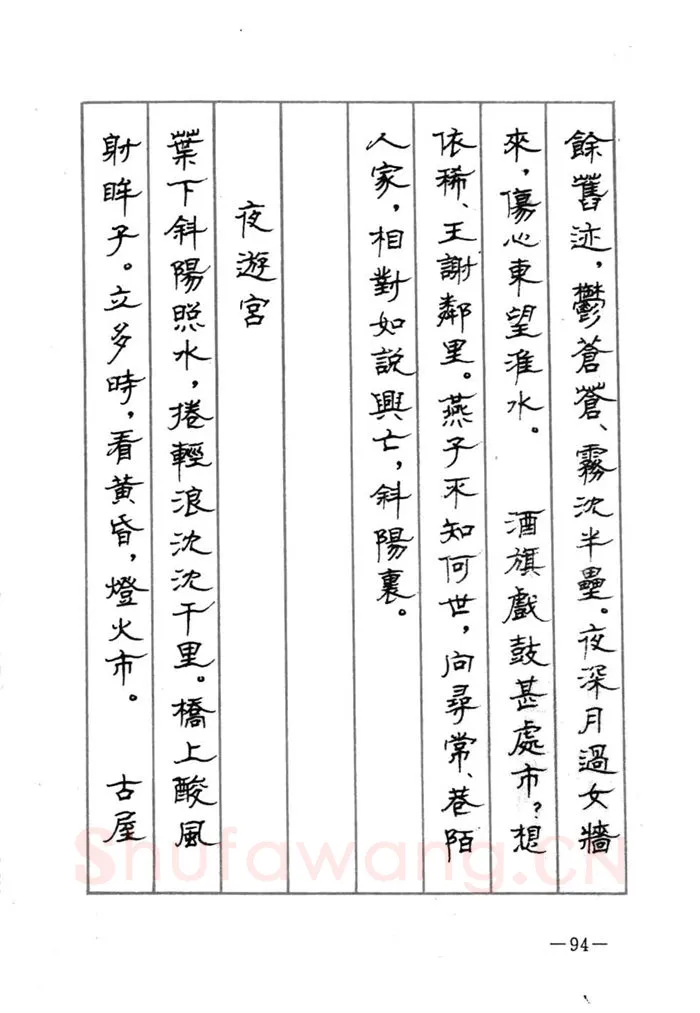 餘舊迹，鬱蒼蒼、霧沈半壘。夜深月過女牆
來，傷心東望淮水。 酒旗戲鼓甚處市？想
依稀、王謝鄰里。燕子不知何世，向尋常、巷陌
人家，相對如説興亡，斜陽裏。
夜遊宮
葉下斜陽照水，捲輕浪沈沈千里。橋上酸風
射眸子。立多時，看黄昏，燈火市。 古屋
Shufawang.CN
—94—